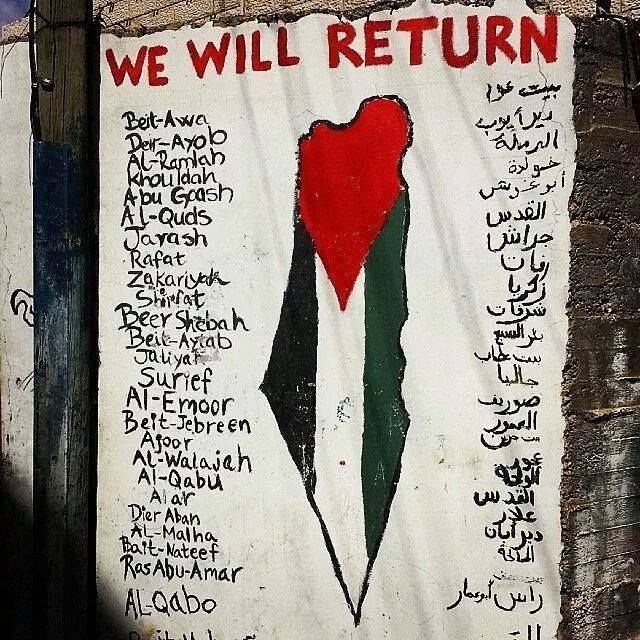 WE WILL RETURN
Beit-Awa
Deir-Ayob
Al-Ramlah
Khouldah
Abu Goash
Al-Quds
Jarash
Rafat
Zakariyah
Shirfat
Beer Shebah
Beit-Aytab
Jaliyat
Surief
Al-Emoor
Beit-Jebreen
Ajoor
Al-Walajah
Al-Qabu
Alar
Dier Aban
AL-Malha
Bait-Nateef
Ras Abu-Amar
AL-Qabo
بيت عوا
دير أيوب
الرملة
خولدة
أبو غوش
القدس
جراش
رفات
زكريا
شرفات
بئر السبع
بيت عطاب
جاليا
صوريف
العمور
عجور
الولجة
القدس
علار
دير أبان
المالحة
راس أبو عمار